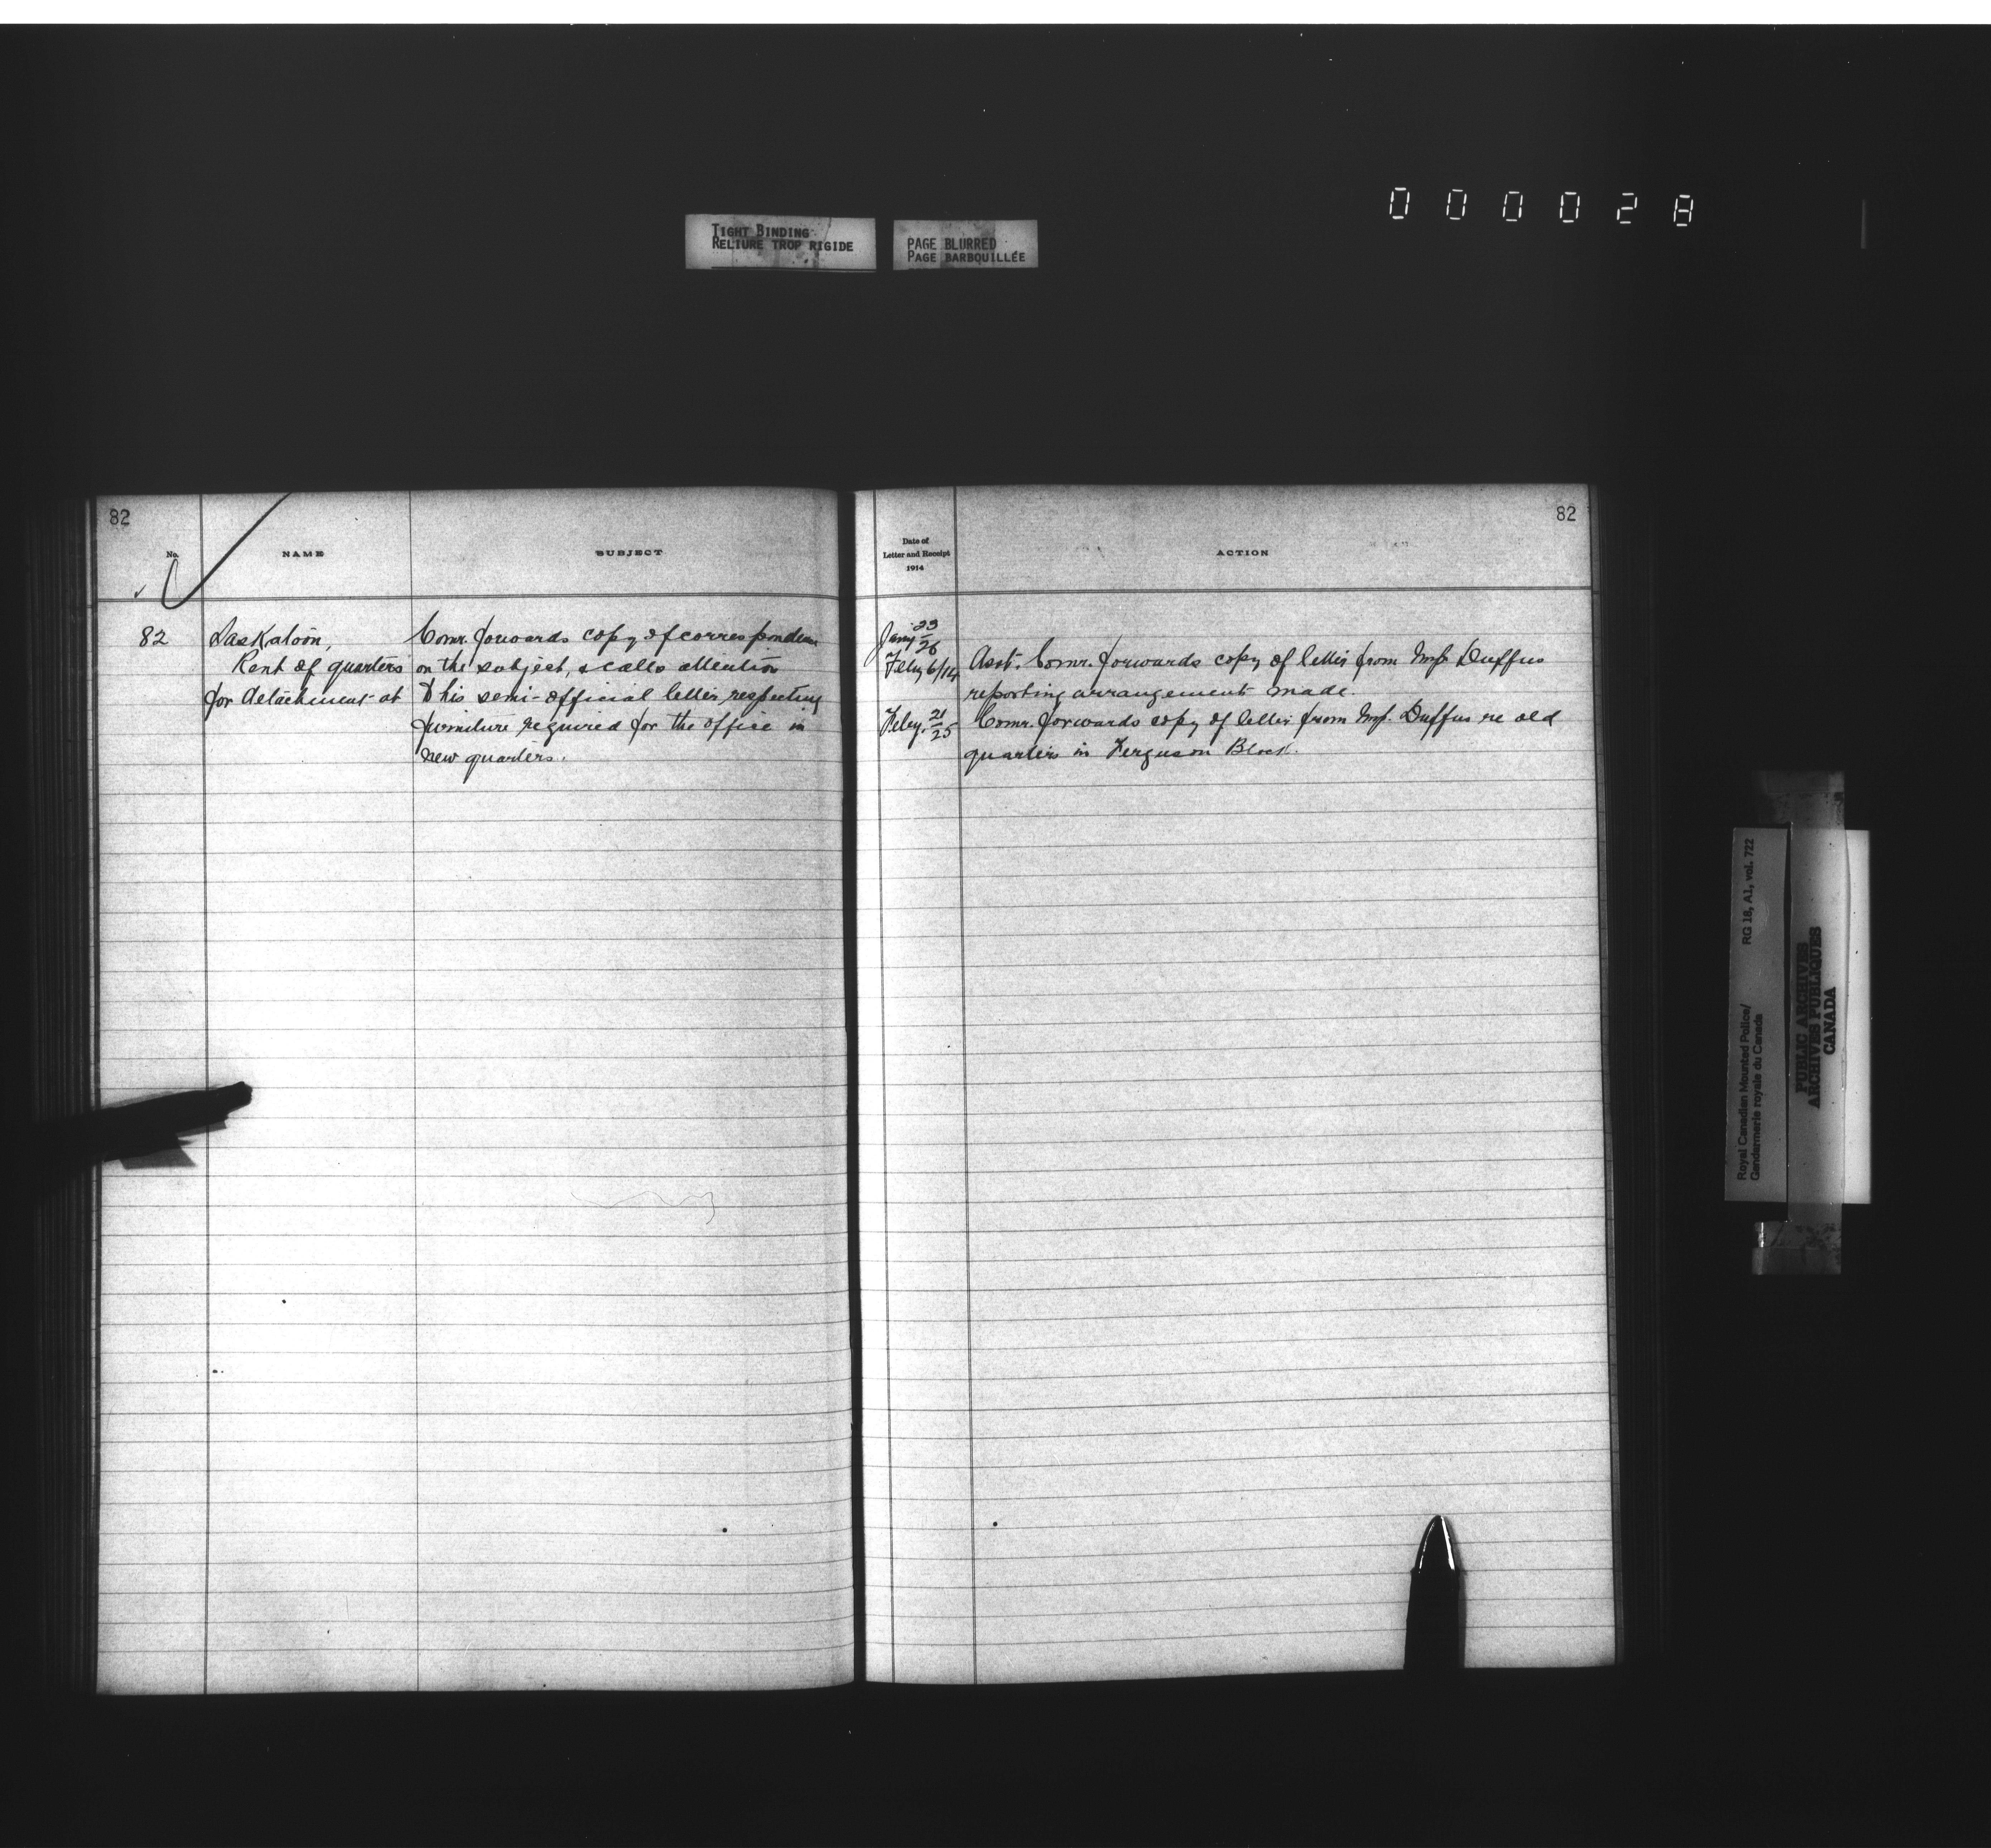 000028
TIGHT BINDING
RELIURE TROP RIGIDE
PAGE BLURRED
PAGE BARBOUILLÉE
82
No.
NAME
SUBJECT
82
Saskatoon,
Rent of quarters
for detachment at
Comr. forwards copy of correspondence
on the subject, & calls attention
to his semi-official letter respecting
furniture required for the office in
new quarters.
82
Date of
Letter and Receipt
1914
ACTION
Jany 23/26
Feby 6/14
Asst. Comr. forwards copy of letter from Insp. Duffus
reporting arrangement made.
Feby. 21/25
Comr. forwards copy of letter from Insp. Duffus re old
quarters in Ferguson Block.
Royal Canadian Mounted Police/
Gendarmerie royale du Canada
RG 18, A1, vol. 722
PUBLIC ARCHIVES
ARCHIVES PUBLIQUES
CANADA